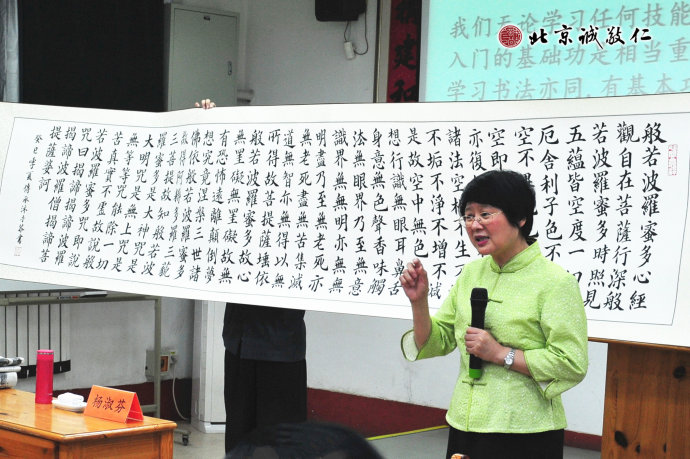 我们无论学习任何技能
入门的基础功是相当重
学习书法亦同,有基本功
北京诚敬仁
建和
般若波羅蜜多心經
觀自在菩薩行深般
若波羅蜜多時照見
五蘊皆空度一切
厄舍利子色不
空不
空即
亦復
諸法空相不生
不垢不淨不增不減
是故空中無色
想行識無眼耳鼻舌
身意無色聲香味觸
法無眼界乃至無意
識界無無明亦無無
明盡乃至無老死亦
無老死盡無苦集滅
道無智亦無得以無
所得故菩提薩埵依
般若波羅蜜多故心
無罣礙無罣礙故無
有恐怖遠離顛倒夢
想究竟涅槃三世諸
佛依般若波羅蜜多
故得阿耨多羅三藐
三菩提故知般若波
羅蜜多是大神咒
大明咒是無上咒是
無等等咒能除一切
苦真實不虛故說般
若波羅蜜多咒即說
咒曰揭諦揭諦波羅
揭諦波羅僧揭諦菩
提薩婆訶
杨淑芬